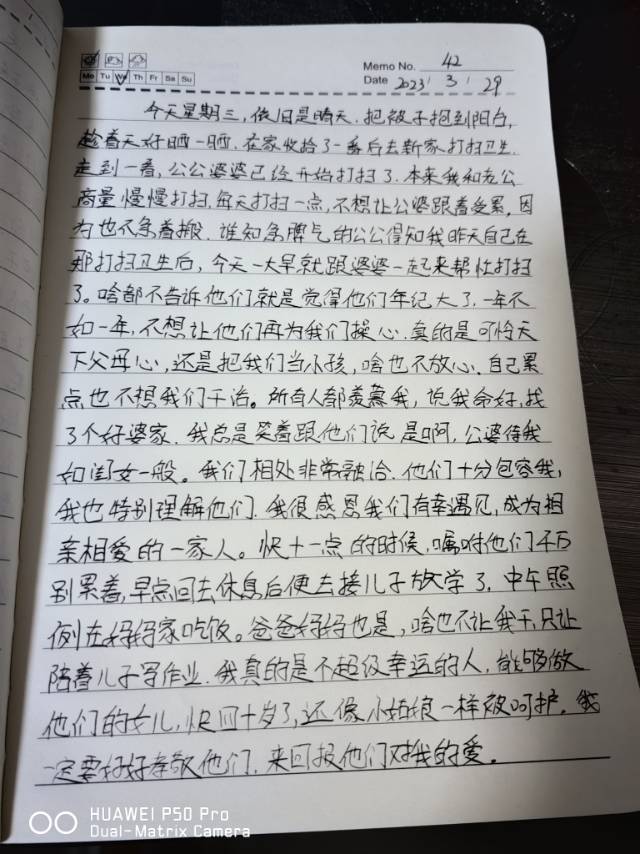 Memo No. 42
Mo Tu Th Fr Sa Su
Date 2023 / 3 / 29
今天星期三，依旧是晴天．把被子抱到阳台，
趁着天好晒一晒．在家收拾了一番后去新家打扫卫生．
走到一看，公公婆婆已经开始打扫了．本来我和老公
商量慢慢打扫，每天打扫一点，不想让公婆跟着受累，因
为也不急着搬．谁知急脾气的公公得知我昨天自己在
那打扫卫生后，今天一大早就跟婆婆一起来帮忙打扫
了。啥都不告诉他们就是觉得他们年纪大了，一年不
如一年，不想让他们再为我们操心．真的是可怜天
下父母心，还是把我们当小孩，啥也不放心．自己累
点也不想我们干活。所有人都羡慕我，说我命好，找
了个好婆家．我总是笑着跟他们说是啊，公婆待我
如闺女一般。我们相处非常融洽．他们十分包容我，
我也特别理解他们．我很感恩我们有幸遇见，成为相
亲相爱的一家人。快十一点的时候，嘱咐他们千万
别累着，早点回去休息后便去接儿子放学了．中午照
例在妈妈家吃饭。爸爸妈妈也是，啥也不让我干，只让
陪着儿子写作业．我真的是个超级幸运的人，能够做
他们的女儿，快四十岁了，还像小姑娘一样被呵护．我
一定要好好孝敬他们，来回报他们对我的爱。
HUAWEI P50 Pro
Dual-Matrix Camera